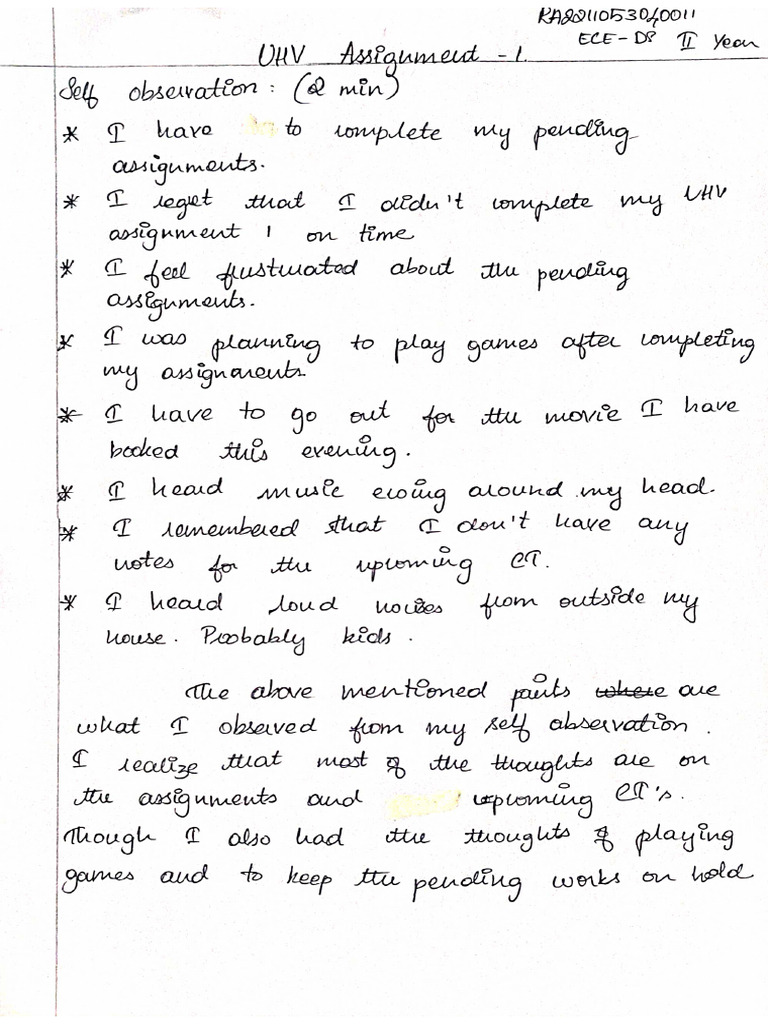 RA2211053040011
ECE-DS II Year
UHV Assignment - 1.
Self observation: (2 min)
* I have to complete my pending
assignments.
* I regret that I didn't complete my UHV
assignment 1 on time
* I feel flustuated about the pending
assignments.
* I was planning to play games after completing
my assignments.
* I have to go out for the movie I have
booked this evening.
* I heard music ewing around my head.
* I remembered that I don't have any
notes for the upcoming CT.
* I heard loud noises from outside my
house. Probably kids.
The above mentioned points where are
what I observed from my self observation.
I realize that most of the thoughts are on
the assignments and upcoming CT's.
Though I also had the thoughts of playing
games and to keep the pending works on hold